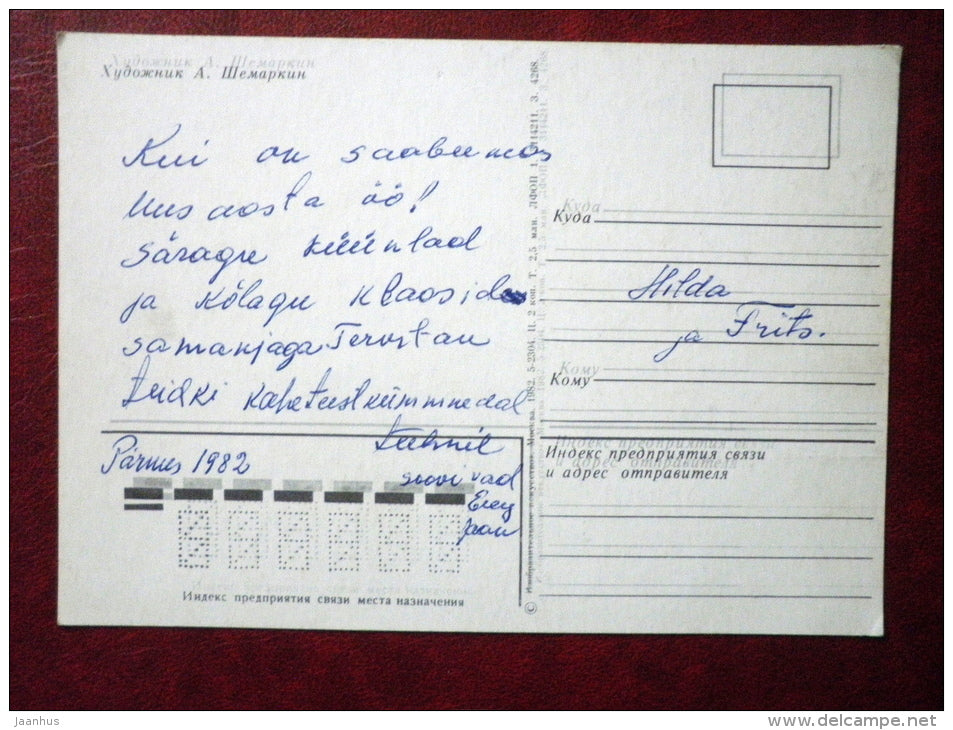 Художник А. Шемаркин
Kui on saabumas
Uusaasta öö!
Säragu küünlad
ja kõlagu klaasid
samanjaga Tervitan
teidki kaheteistkümmnedal
Pärnus 1982
soovivad
Jaan
Индекс предприятия связи места назначения
© Изобразительное искусство. Москва. 1982. 5-2304. Ц. 2 коп. Т. 2,5 млн. ЛФОП 1. З. 4268.
Куда
Hilda
ja Frits.
Кому
Индекс предприятия связи
и адрес отправителя
jaanhus
www.delcampe.net